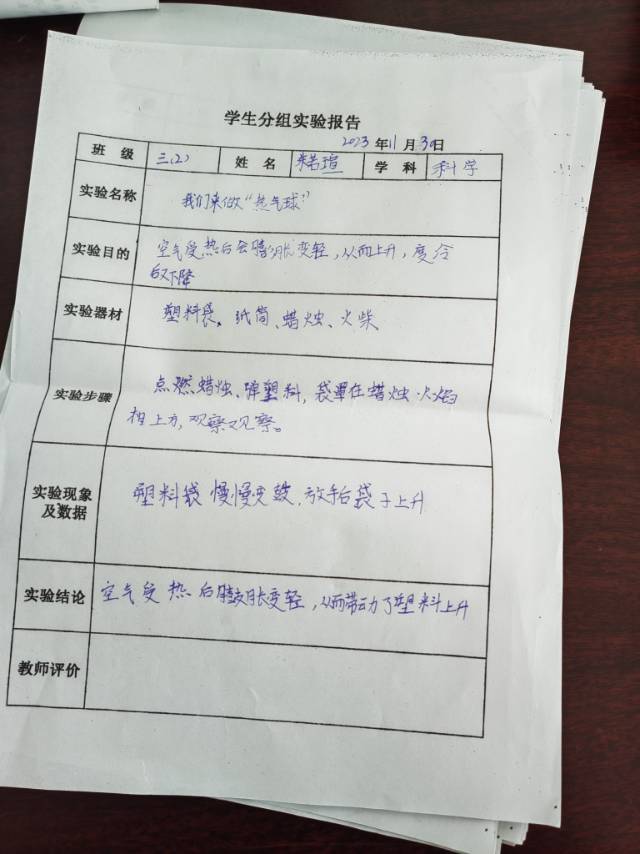 学生分组实验报告
2023 年 11 月 30 日
班 级 三(2) 姓 名 朱若瑄 学 科 科学
实验名称 我们来做“热气球”
实验目的 空气受热后会膨胀变轻,从而上升,度冷
后又下降
实验器材 塑料袋、纸筒、蜡烛、火柴
实验步骤 点燃蜡烛、 塑料,袋罩在蜡烛火焰
上方,观察又观察。
实验现象
及数据 塑料袋慢慢变鼓,放手后袋子上升
实验结论 空气受热后膨胀变轻,从而带动了塑料上升
教师评价